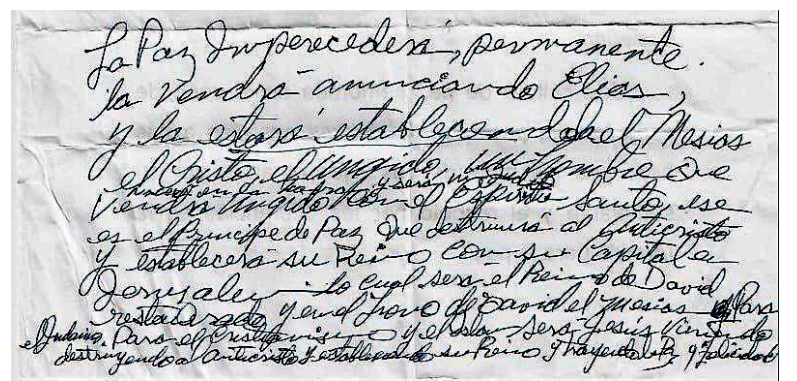 La Paz Imperecedera, permanente.
la vendrá anunciando Elías,
y la estará estableciendola el Mesías
el Cristo, el Ungido, un hombre que
y será
Vendrá Ungido con el Espíritu Santo, ese
es el Príncipe de Paz que destruirá al anticristo
y establecerá su Reino con su Capital en
Jerusalen lo cual será el Reino de David
restaurado y en el trono de David el Mesías Para
el Judaismo. Para el Cristianismo y el será Jesús Viniendo
destruyendo a anticristo y estableciendo su Reino y trayendo la Paz y felicidad